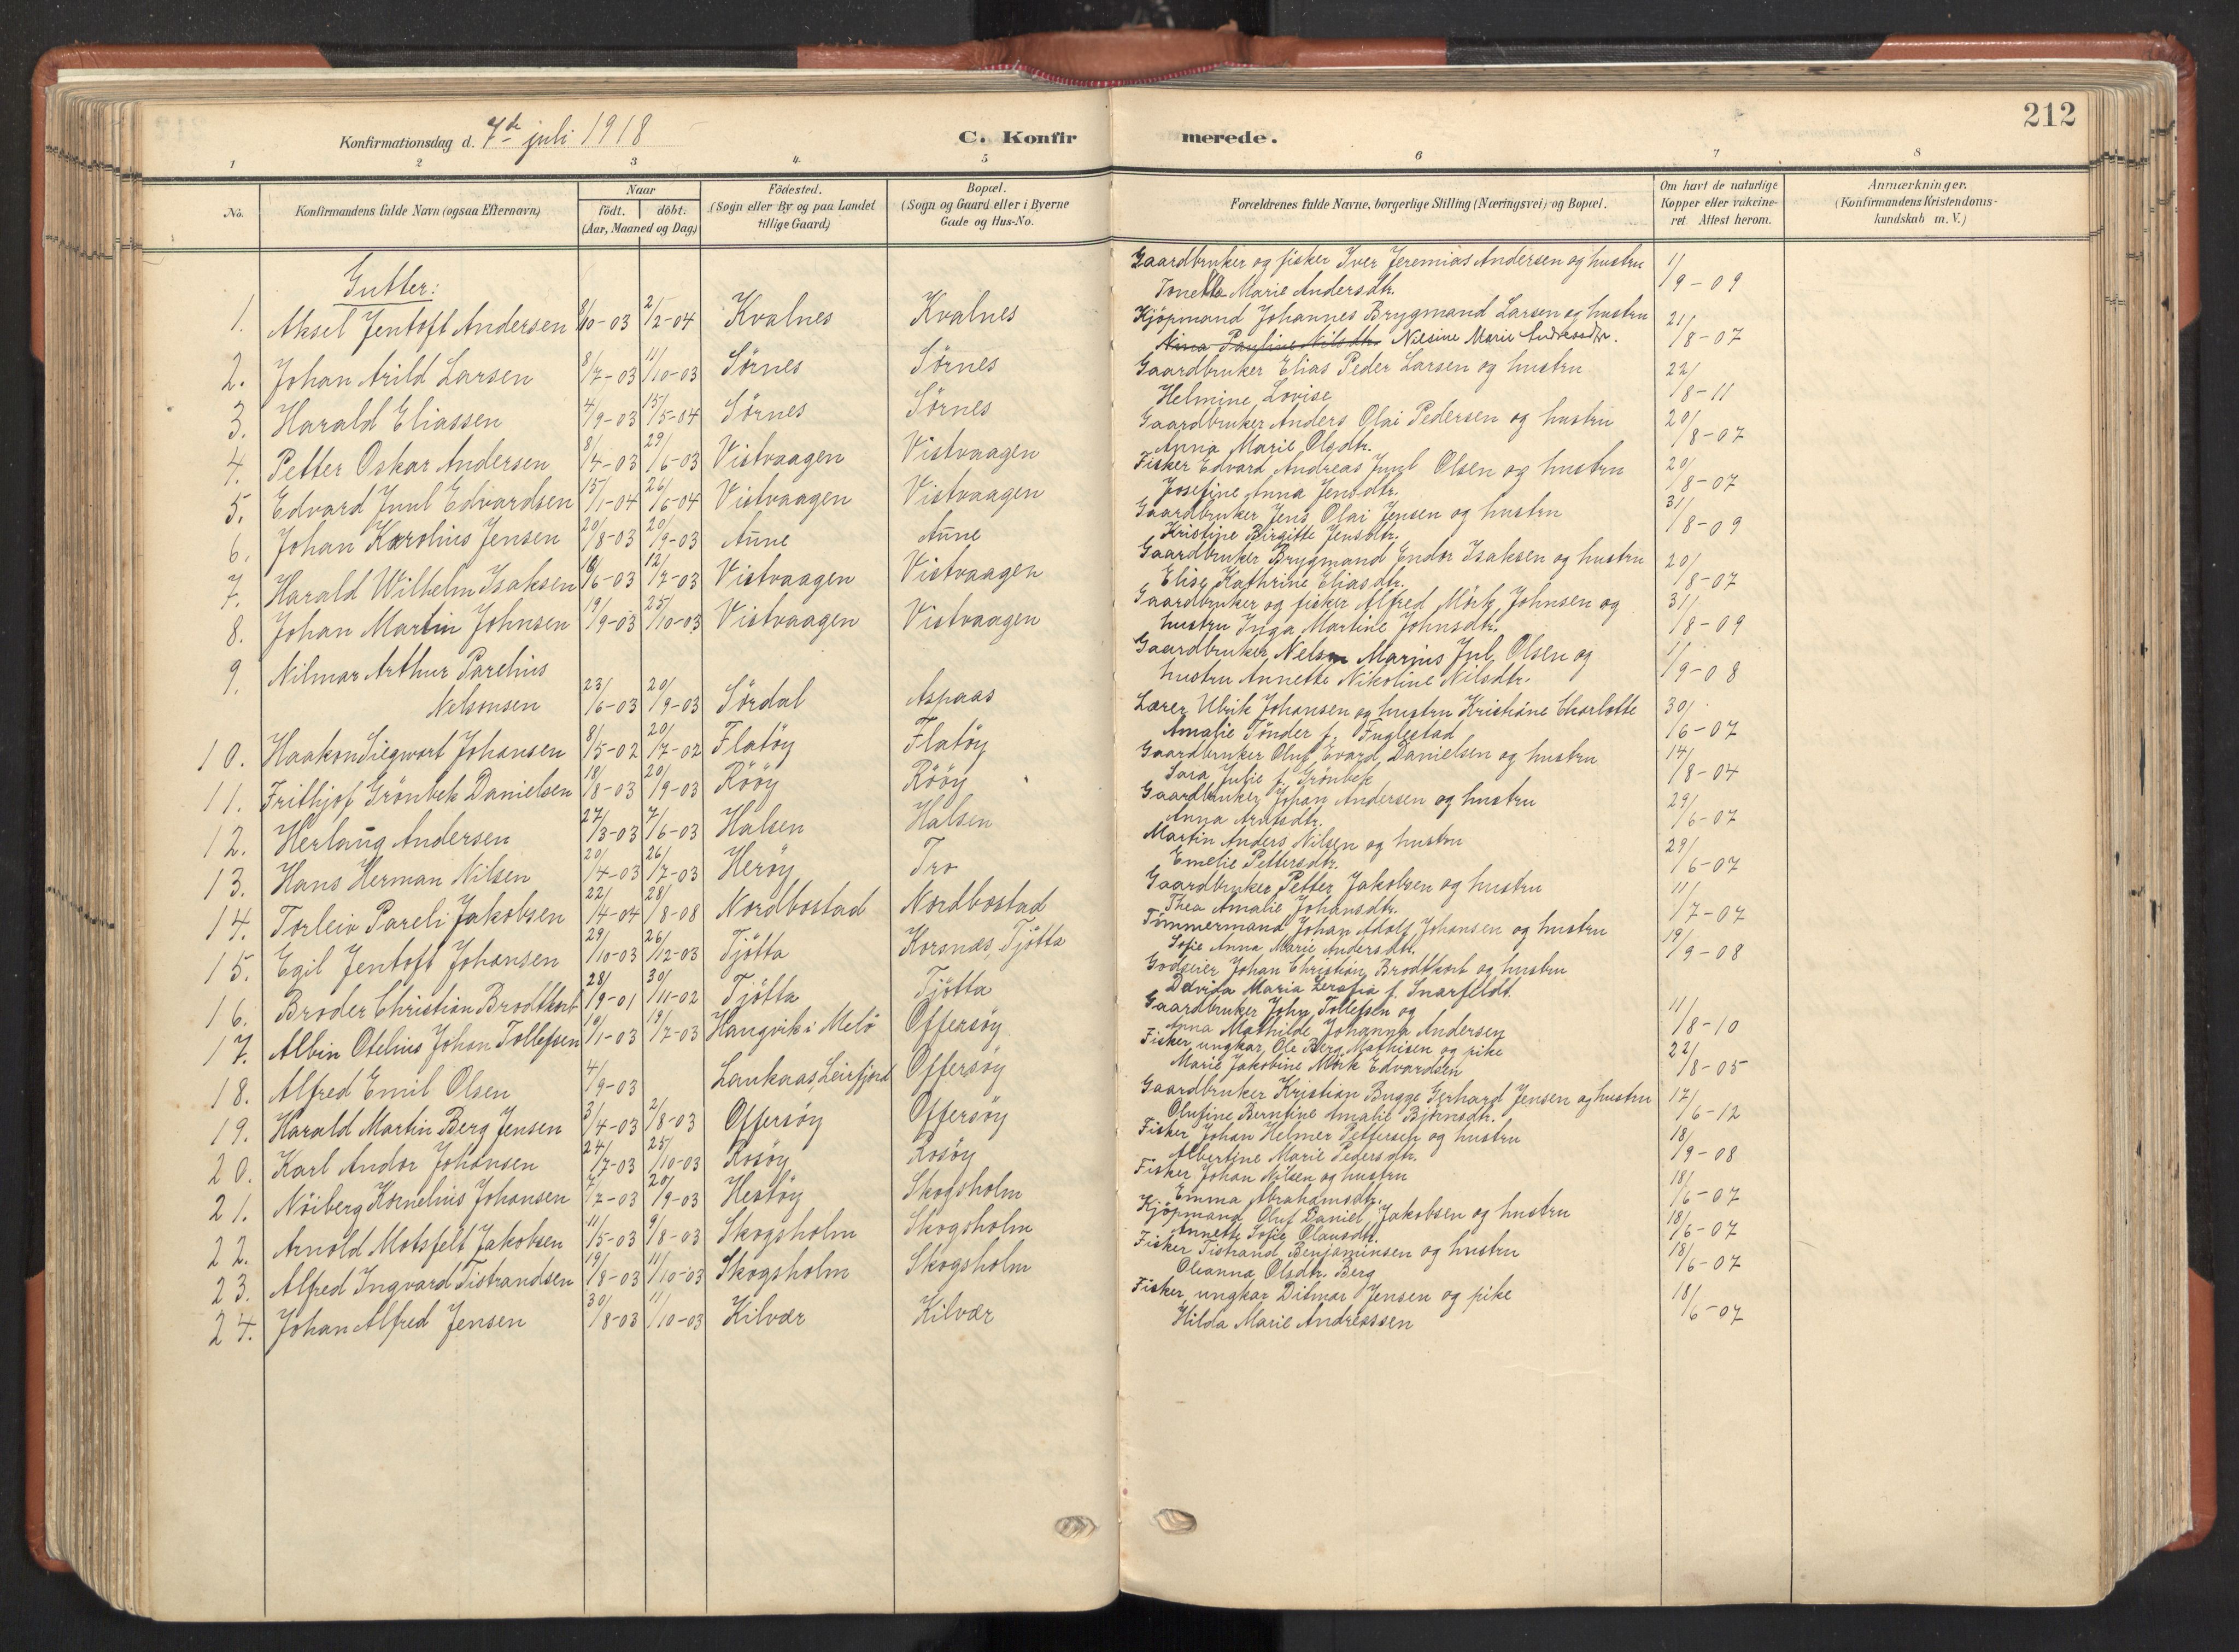 212
Konfirmationsdag d. 7de juli 1918
C. Konfirmerede.
1 2 3 4 5 6 7 8
No.
Konfirmandens fulde Navn (ogsaa Efternavn)
Naar
födt. döbt.
(Aar, Maaned og Dag)
Födested.
(Sogn eller By og paa Landet
tillige Gaard)
Bopæl.
(Sogn og Gaard eller i Byerne
Gade og Hus-No.
Forældrenes fulde Navne, borgerlige Stilling (Næringsvei) og Bopæl.
Om havt de naturlige
Kopper eller vakcine-
ret. Attest herom.
Anmærkninger.
(Konfirmandens Kristendoms-
kundskab m. V.)
Gutter:
1. Aksel Jentoft Andersen 8/10-03 2/2-04 Kvalnes Kvalnes
Gaardbruker og fisker Iver Jeremias Andersen og hustru 1/9-09
Tonette Marie Andersdtr.
2. Johan Arild Larsen 8/7-03 11/10-03 Sörnes Sörnes
Kjöpmand Johannes Brygmand Larsen og hustru 21/8-07
Nina Pauline Nilsdtr. Nilsine Marie Andreasdtr.
3. Harald Eliassen 4/9-03 15/5-04 Sörnes Sörnes
Gaardbruker Elias Peder Larsen og hustru 22/8-11
Helmine Lovise
4. Petter Oskar Andersen 8/4-03 29/6-03 Vistvaagen Vistvaagen
Gaardbruker Anders Olai Pedersen og hustru 20/8-07
Anna Marie Olsdtr.
5. Edvard Juul Edvardsen 15/1-04 26/6-04 Vistvaagen Vistvaagen
Fisker Edvard Andreas Juul Olsen og hustru 20/8-07
Josefine Anna Jensdtr.
6. Johan Karolius Jensen 20/8-03 20/9-03 Aune Aune
Gaardbruker Jens Olai Jensen og hustru 31/8-09
Kristine Birgitte Jensdtr.
7. Harald Wilhelm Isaksen 18/6-03 12/7-03 Vistvaagen Vistvaagen
Gaardbruker Brygmand Endor Isaksen og hustru 20/8-07
Elise Kathrine Eliasdtr.
8. Johan Martin Johnsen 19/9-03 25/10-03 Vistvaagen Vistvaagen
Gaardbruker og fisker Alfred Mörk Johnsen og 31/8-09
hustru Inga Martine Johnsdtr.
9. Nilmar Arthur Parelius
Nelsonsen 23/6-03 20/9-03 Sördal Aspaas
Gaardbruker Nelson Marius Jul Olsen og 1/9-08
hustru Annette Nikoline Nilsdtr.
10. Haakon Siegwart Johansen 8/5-02 20/7-02 Flatöy Flatöy
Lærer Ulrik Johansen og hustru Kristiane Charlotte 30/6-07
Amalie Tönder f. Fuglestad
11. Frithjof Grönbek Danielsen 18/8-03 20/9-03 Rööy Rööy
Gaardbruker Oluf Evard Danielsen og hustru 14/8-04
Sara Julie f. Grönbek
12. Herlaug Andersen 27/3-03 7/6-03 Halsen Halsen
Gaardbruker Johan Andersen og hustru 29/6-07
Anna Arntsdtr.
13. Hans Herman Nilsen 20/4-03 26/7-03 Heröy Tro
Martin Anders Nilsen og hustru 29/6-07
Emelie Pettersdtr.
14. Torleiv Pareli Jakobsen 22/4-04 28/8-08 Nordbostad Nordbostad
Gaardbruker Petter Jakobsen og hustru 11/7-07
Thea Amalie Johansdtr.
15. Egil Jentoft Johansen 29/10-03 26/12-03 Tjötta Korsnæs, Tjötta
Tömmermand Johan Adolf Johansen og hustru 19/9-08
Sofie Anna Marie Andersdtr.
16. Broder Christian Brodtkorb 28/9-01 30/11-02 Tjötta Tjötta
Godseier Johan Christian Brodtkorb og hustru
Davida Maria Zerafia f. Snarfeldt
17. Albin Otelius Johan Tollefsen 10/1-03 19/7-03 Haugvik i Melö Offersöy
Gaardbruker John Tollefsen og 11/8-10
Anna Mathilde Johanna Andersen
18. Alfred Emil Olsen 4/9-03 Laukaas, Leirfjord Offersöy
Fisker ungkar Ole Berg Mathisen og pike 22/8-05
Marie Jakobine Mörk Edvardsen
19. Harald Martin Berg Jensen 3/4-03 2/8-03 Offersöy Offersöy
Gaardbruker Kristian Bugge Gerhard Jensen og hustru 17/6-12
Olufine Berntine Amalie Björnsdtr.
20. Karl Andor Johansen 24/7-03 25/10-03 Rosöy Rosöy
Fisker Johan Helmer Pettersen og hustru 18/9-08
Albertine Marie Pedersdtr.
21. Nöiberg Kornelius Johansen 7/7-03 20/9-03 Hestöy Skogsholm
Fisker Johan Nilsen og hustru 18/6-07
Emma Abrahamsdtr.
22. Arnold Motsfelt Jakobsen 11/5-03 9/8-03 Skogsholm Skogsholm
Kjöpmand Oluf Daniel Jakobsen og hustru 18/6-07
Annette Sofie Olausdtr.
23. Alfred Ingvard Tistrandsen 19/8-03 11/10-03 Skogsholm Skogsholm
Fisker Tistrand Benjaminsen og hustru 18/6-07
Oleanna Olsdtr. Berg
24. Johan Alfred Jensen 30/8-03 11/10-03 Kilvær Kilvær
Fisker, ungkar Ditmar Jensen og pike 18/6-07
Hilda Marie Andreassen